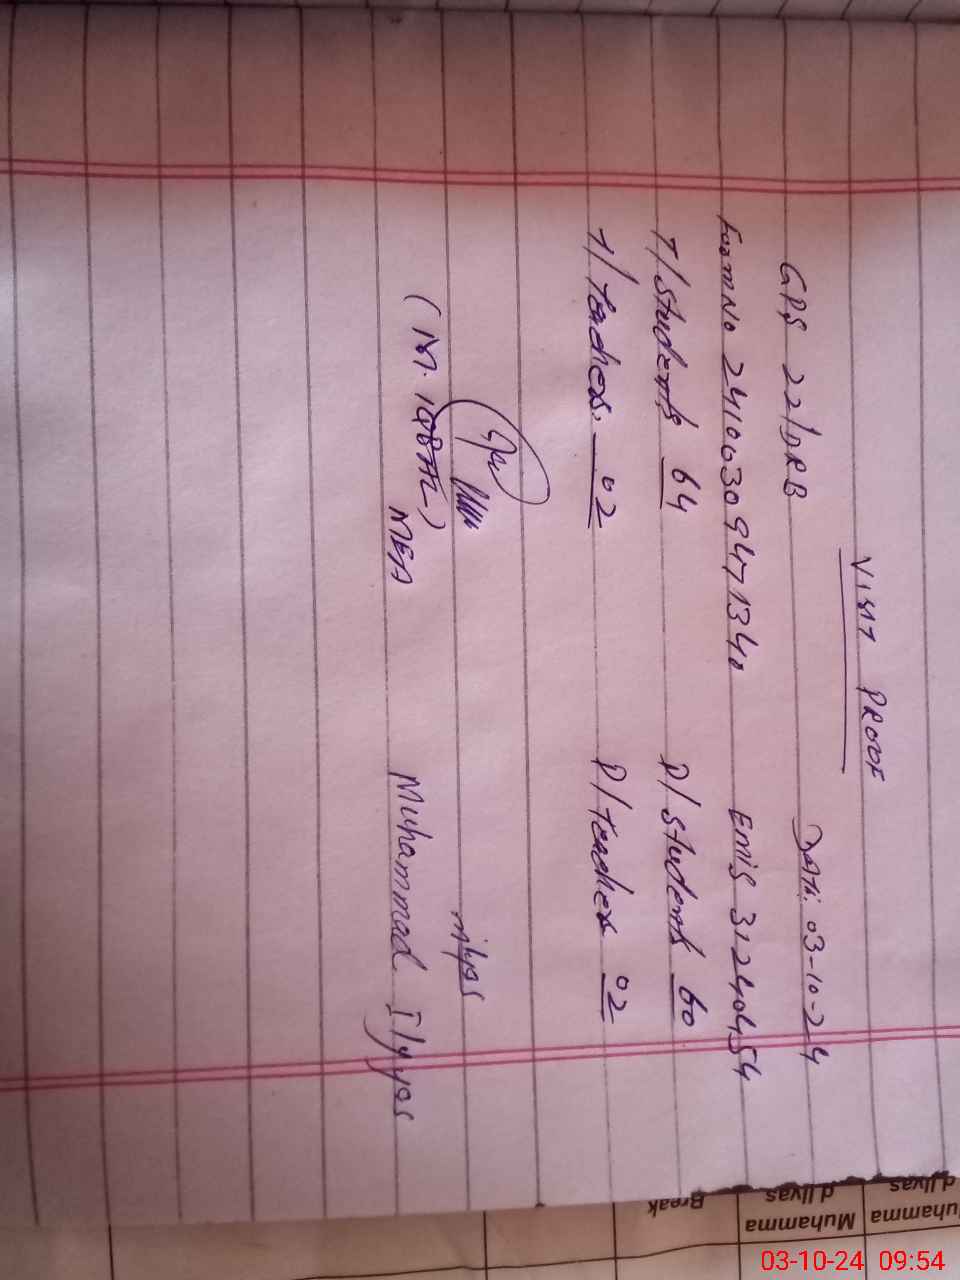 VISIT PROOF
GPS 22/DRB Date: 03-10-24
Form No 24100309471340 Emis 31240454
T/Students 64 P/Students 60
T/Teacher. 02 P/Teacher 02
milyas
(M. IQBAL) Muhammad Ilyyas
MEA
Break
Muhamma
d Ilyas
Muhamma
d Ilyas
03-10-24 09:54